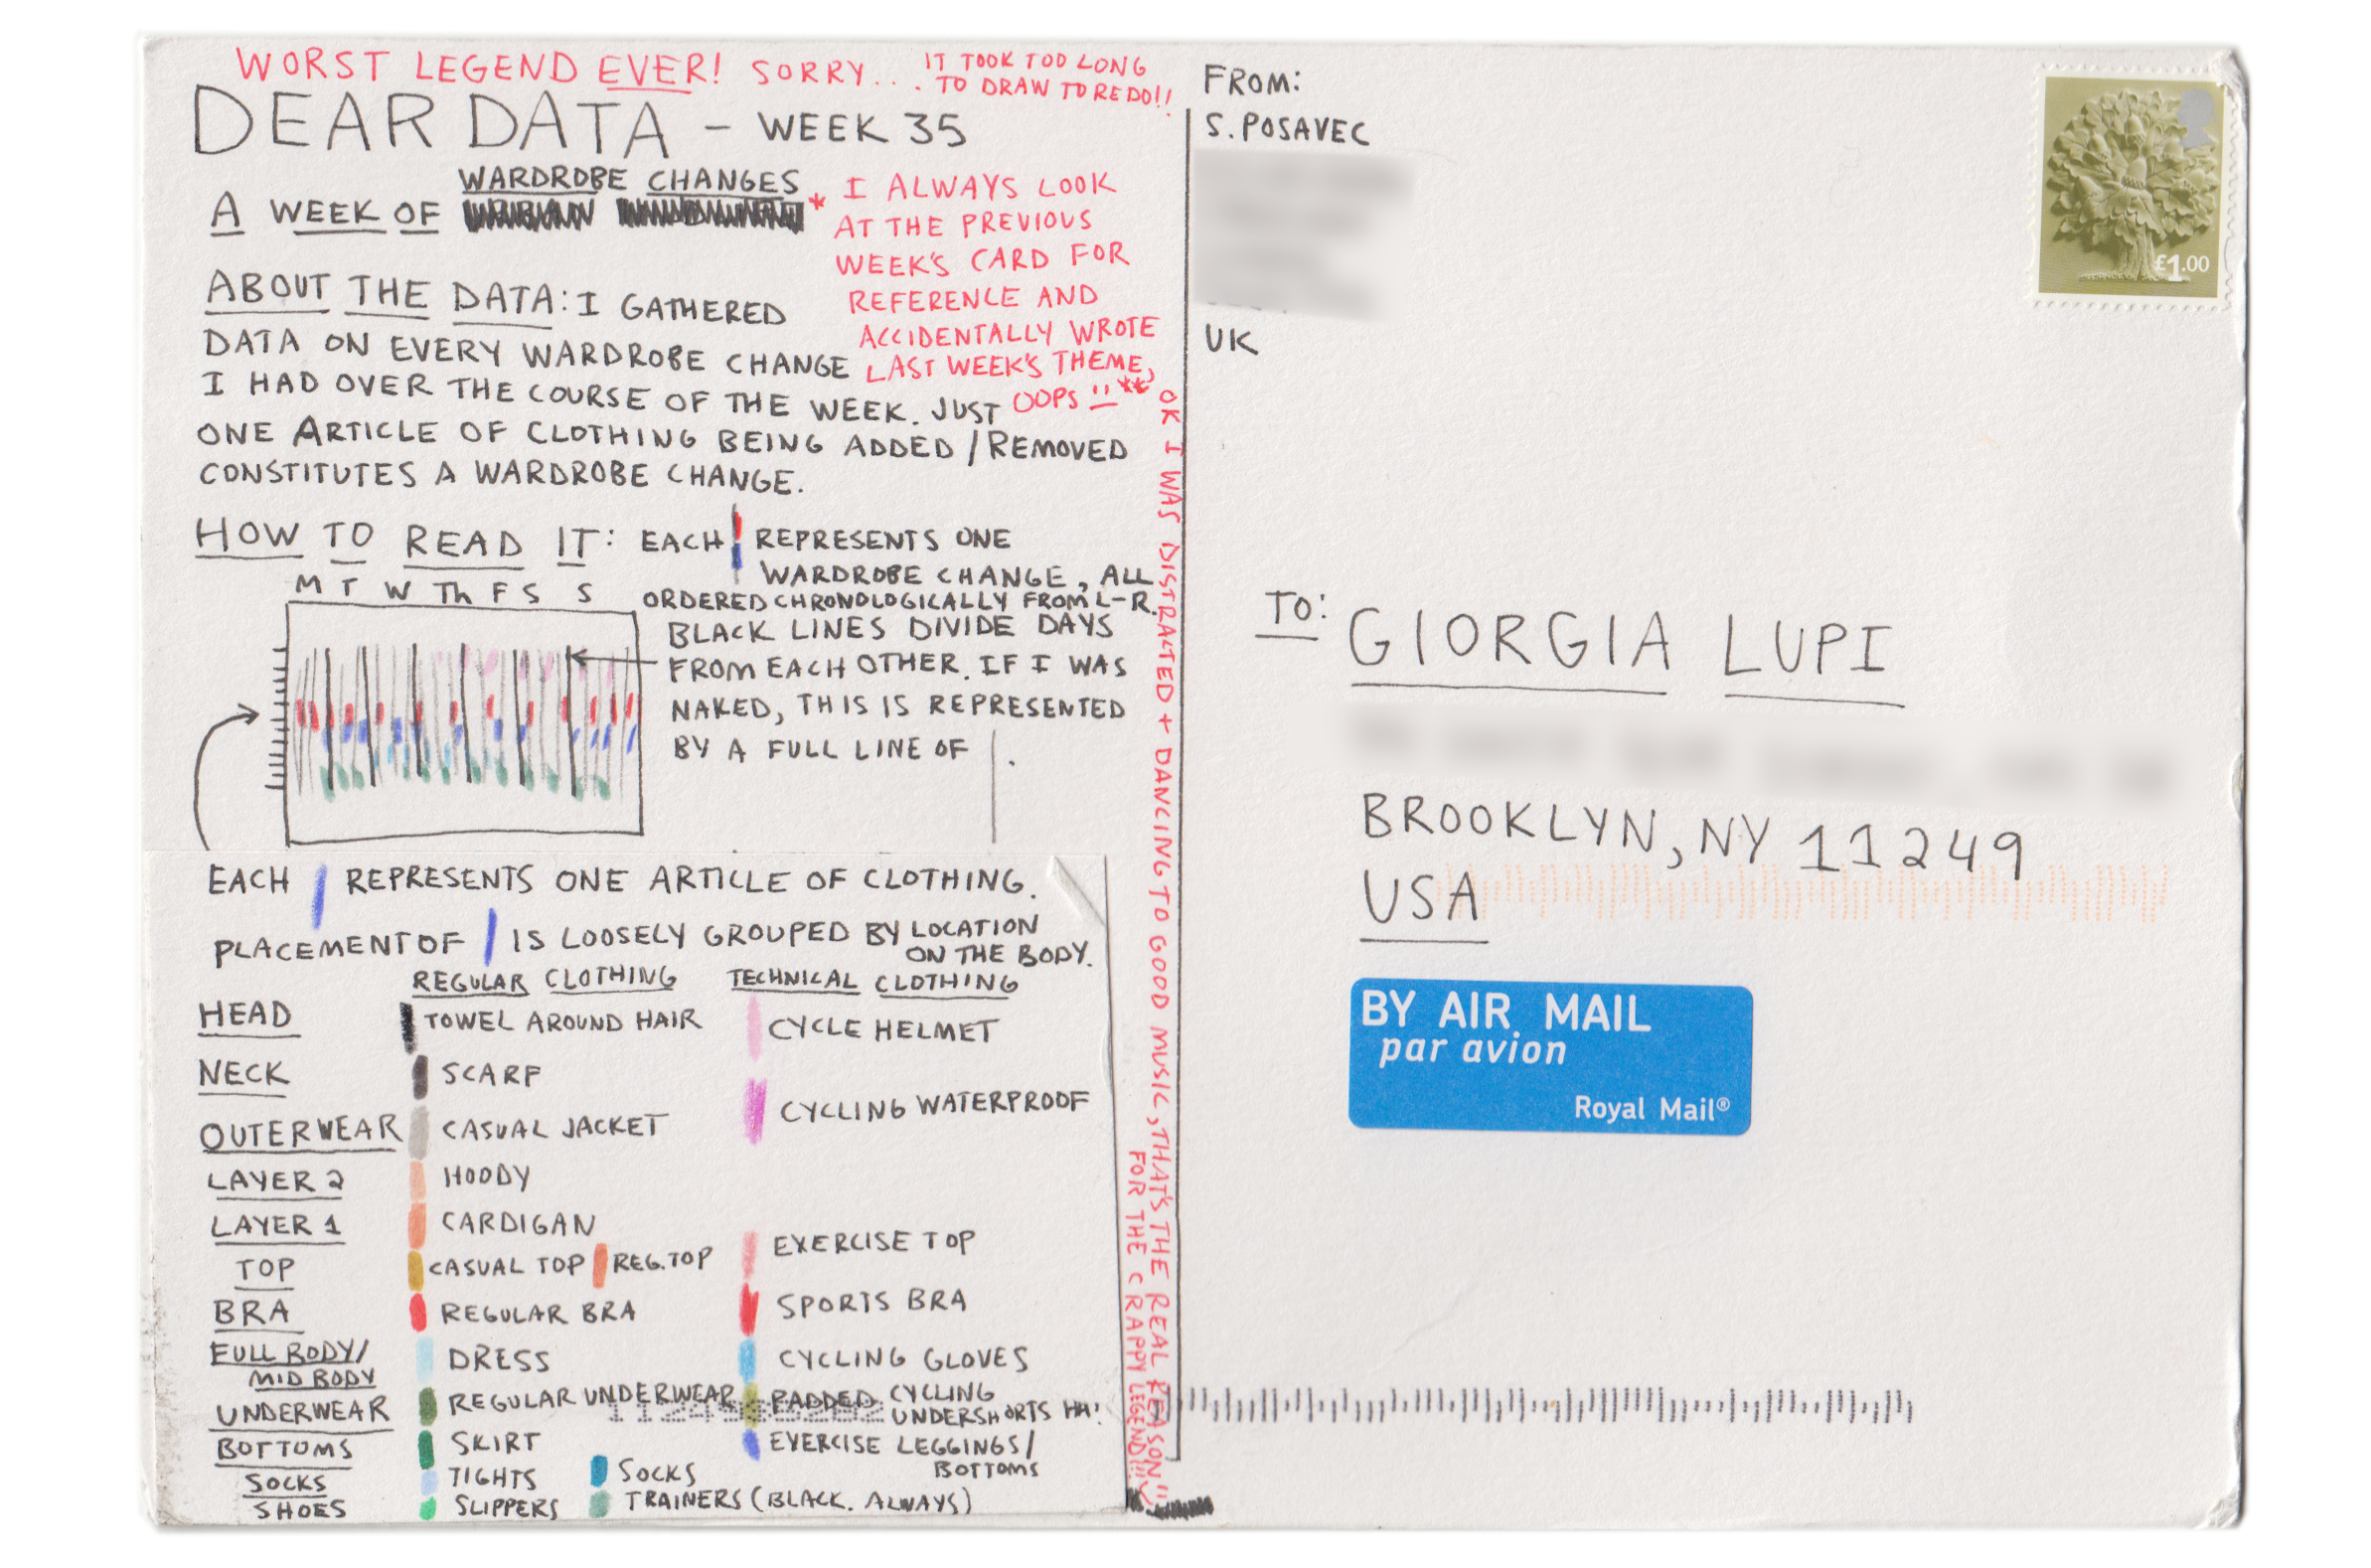 WORST LEGEND EVER! SORRY... IT TOOK TOO LONG
TO DRAW TO REDO!!
DEAR DATA - WEEK 35
WARDROBE CHANGES
A WEEK OF *
I ALWAYS LOOK
AT THE PREVIOUS
WEEK'S CARD FOR
REFERENCE AND
ACCIDENTALLY WROTE
LAST WEEK'S THEME,
OOPS **
ABOUT THE DATA: I GATHERED
DATA ON EVERY WARDROBE CHANGE
I HAD OVER THE COURSE OF THE WEEK. JUST
ONE ARTICLE OF CLOTHING BEING ADDED/REMOVED
CONSTITUTES A WARDROBE CHANGE.
HOW TO READ IT: EACH REPRESENTS ONE
WARDROBE CHANGE, ALL
ORDERED CHRONOLOGICALLY FROM L-R.
BLACK LINES DIVIDE DAYS
FROM EACH OTHER. IF I WAS
NAKED, THIS IS REPRESENTED
BY A FULL LINE OF .
M T W Th F S S
EACH REPRESENTS ONE ARTICLE OF CLOTHING.
PLACEMENT OF IS LOOSELY GROUPED BY LOCATION
ON THE BODY.
REGULAR CLOTHING TECHNICAL CLOTHING
HEAD TOWEL AROUND HAIR CYCLE HELMET
NECK SCARF
CYCLING WATERPROOF
OUTERWEAR CASUAL JACKET
LAYER 2 HOODY
LAYER 1 CARDIGAN
EXERCISE TOP
TOP CASUAL TOP REG. TOP
BRA REGULAR BRA SPORTS BRA
FULL BODY/
MID BODY DRESS CYCLING GLOVES
UNDERWEAR REGULAR UNDERWEAR PADDED CYCLING
UNDERSHORTS HA!
BOTTOMS SKIRT EXERCISE LEGGINGS/
BOTTOMS
SOCKS TIGHTS SOCKS
SHOES SLIPPERS TRAINERS (BLACK. ALWAYS)
OK I WAS DISTRACTED + DANCING TO GOOD MUSIC, THAT'S THE REAL REASON
FOR THE CRAPPY LEGEND!!!
FROM:
S. POSAVEC
UK
£1.00
TO: GIORGIA LUPI
BROOKLYN, NY 11249
USA
BY AIR MAIL
par avion
Royal Mail®